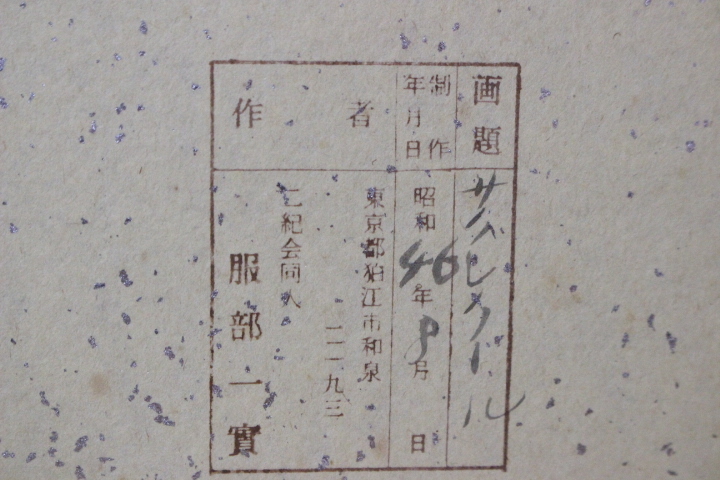 画題
サバンクドール
制作年月日
昭和46年8月 日
作者
東京都狛江市和泉
一二九三
二紀会同人
服部一實